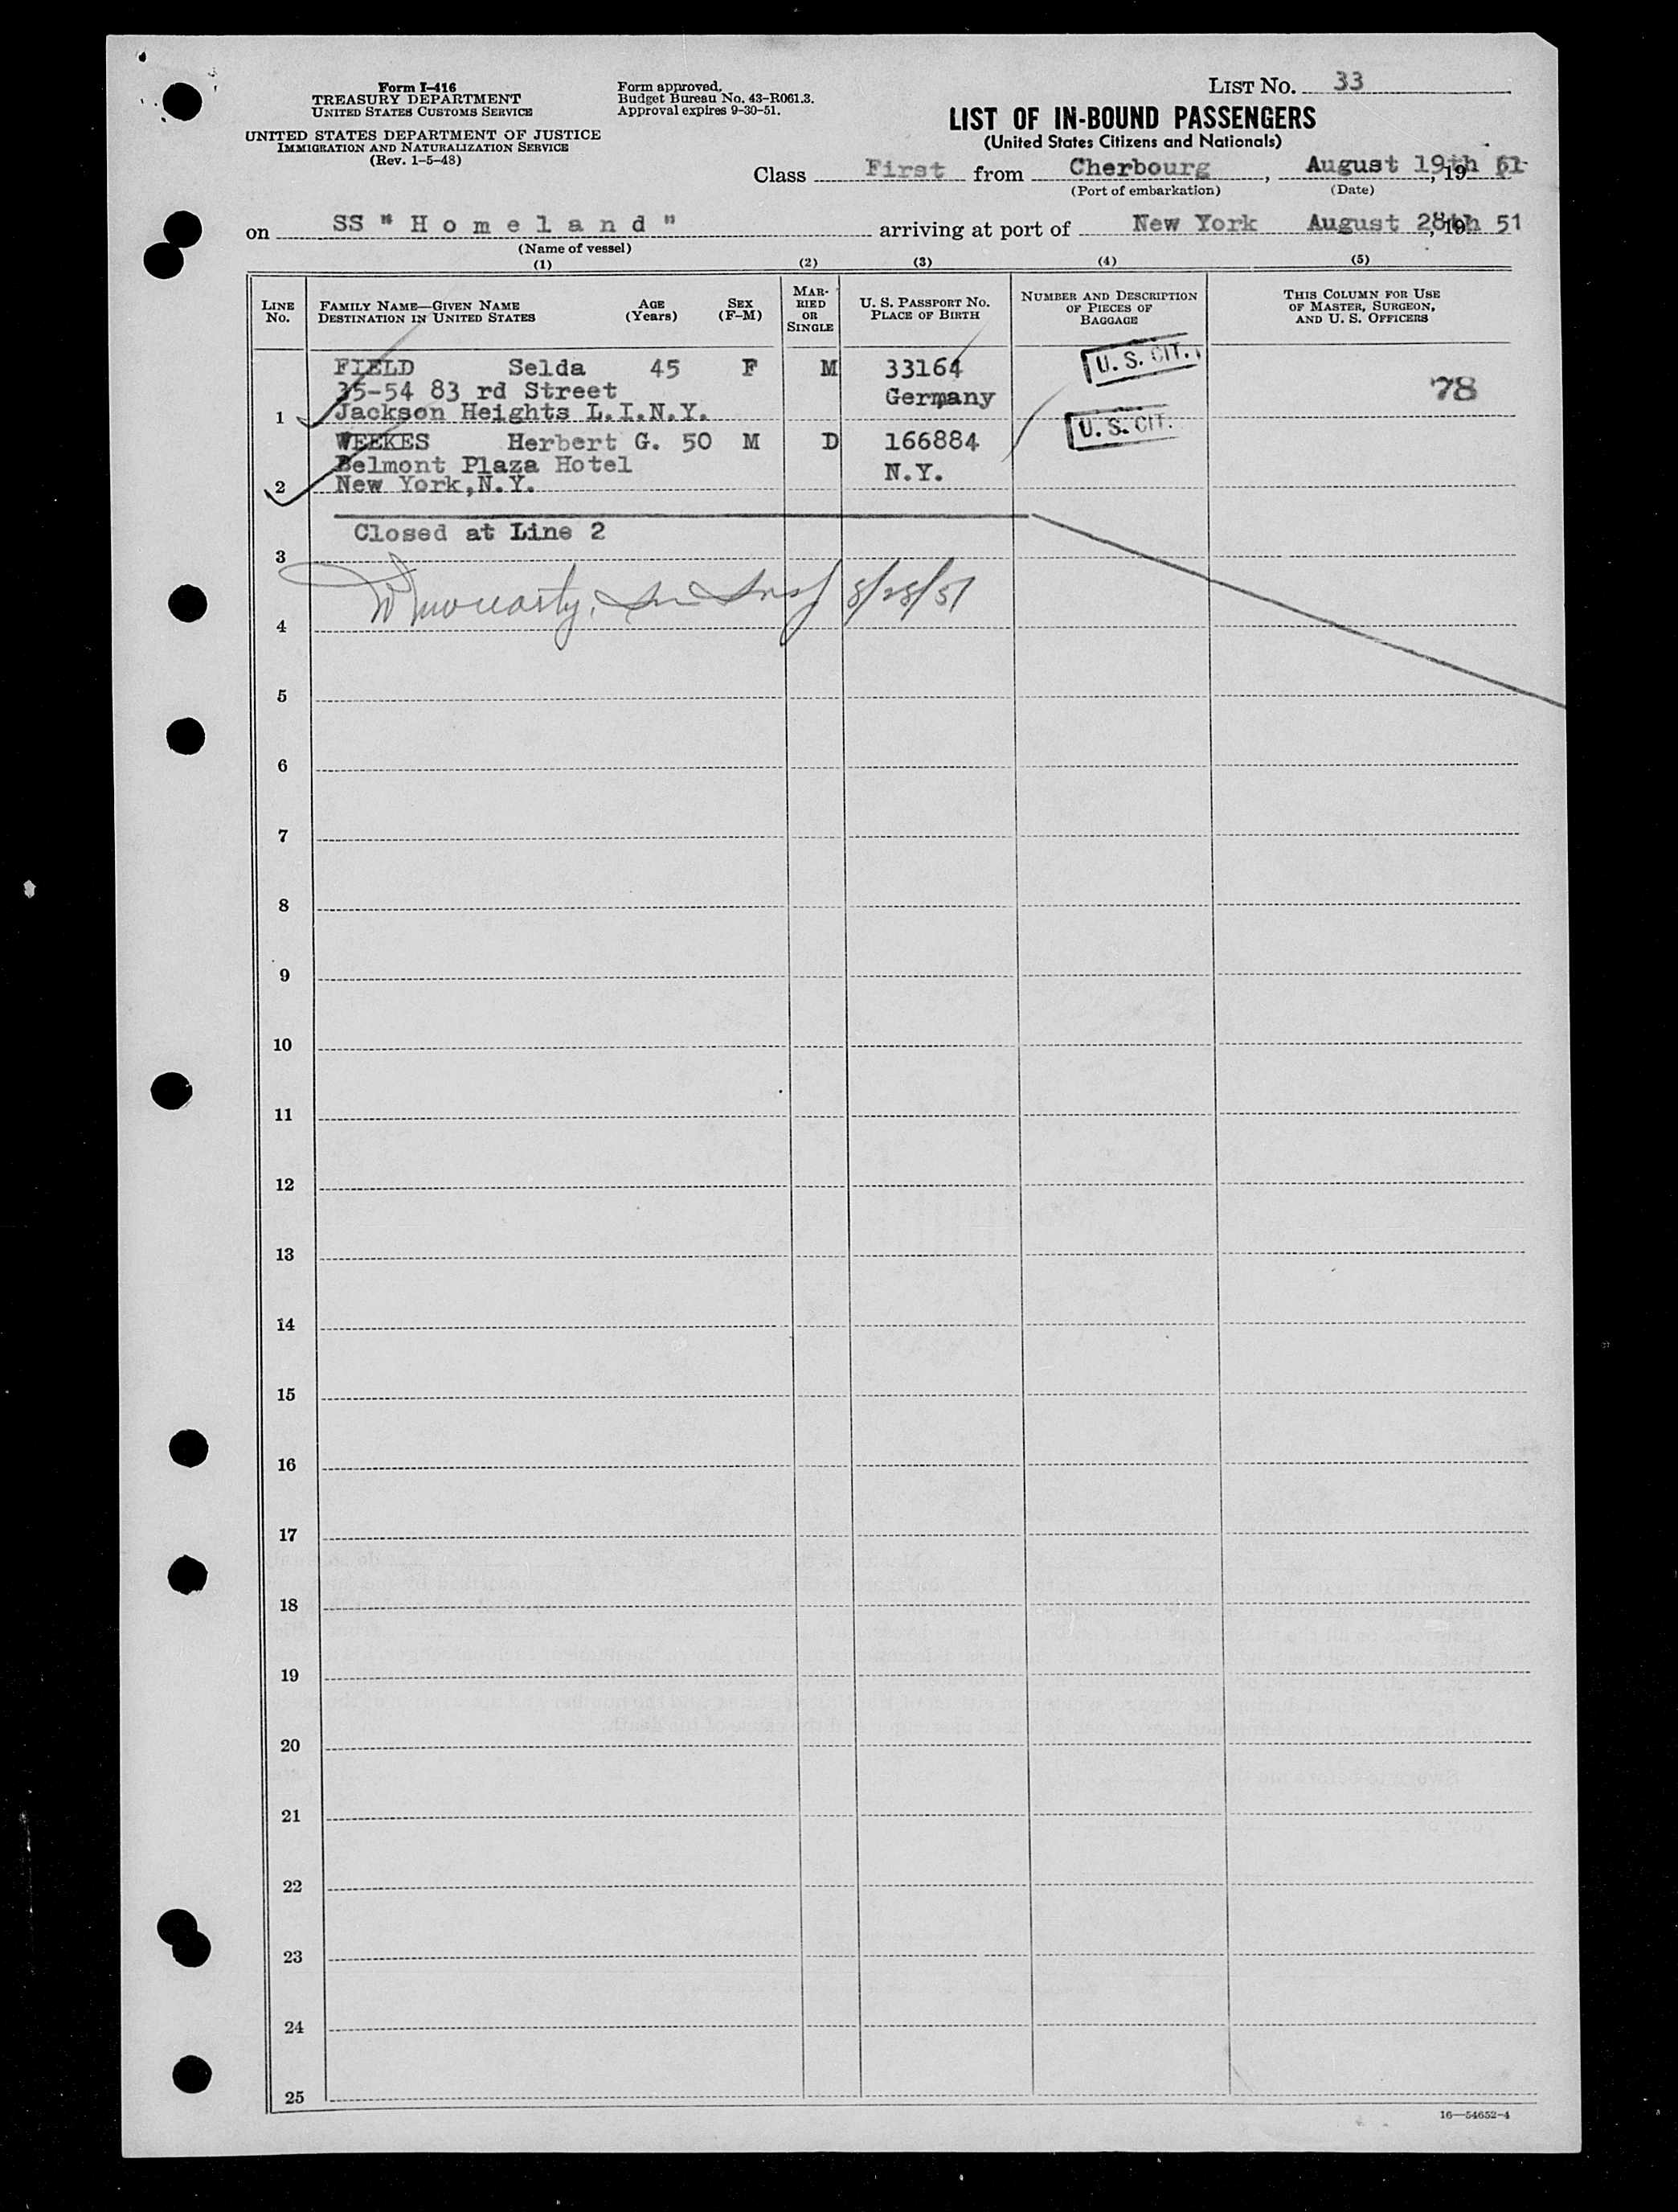 Form I-416
TREASURY DEPARTMENT
UNITED STATES CUSTOMS SERVICE
UNITED STATES DEPARTMENT OF JUSTICE
IMMIGRATION AND NATURALIZATION SERVICE
(Rev. 1-5-48)
Form approved.
Budget Bureau No. 43-R061.3.
Approval expires 9-30-51.
LIST NO. 33
LIST OF IN-BOUND PASSENGERS
(United States Citizens and Nationals)
Class First from Cherbourg, August 19th, 19 51
(Port of embarkation) (Date)
on SS " H o m e l a n d " arriving at port of New York August 28th, 19 51
(Name of vessel)
(1) (2) (3) (4) (5)
LINE NO. FAMILY NAME—GIVEN NAME DESTINATION IN UNITED STATES AGE (Years) SEX (F-M) MARRIED OR SINGLE U. S. PASSPORT NO. PLACE OF BIRTH NUMBER AND DESCRIPTION OF PIECES OF BAGGAGE THIS COLUMN FOR USE OF MASTER, SURGEON, AND U. S. OFFICERS
FIELD Selda 45 F M 33164 U. S. CIT.
35-54 83 rd Street Germany 78
1 Jackson Heights L.I.N.Y.
WEEKES Herbert G. 50 M D 166884 U. S. CIT.
Belmont Plaza Hotel N.Y.
2 New York,N.Y.
Closed at Line 2
3
8/28/51
4
5
6
7
8
9
10
11
12
13
14
15
16
17
18
19
20
21
22
23
24
25
16—54652-4